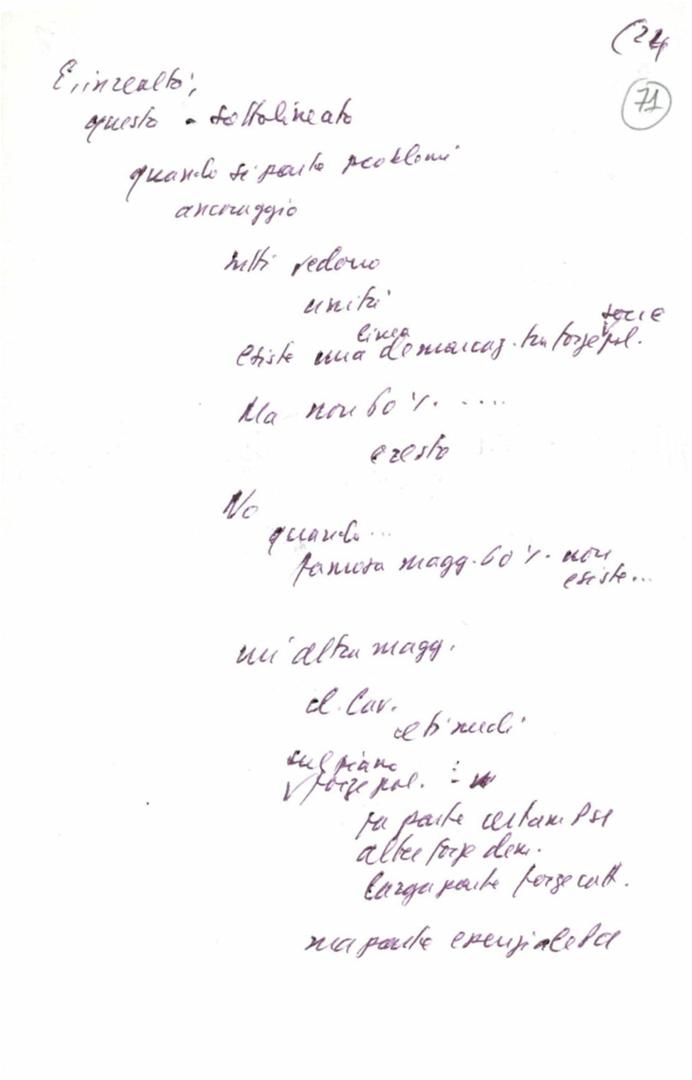 (24
71
E, in realtà,
questo - sottolineato
quando si parla problemi
ancoraggio
tutti vedono
unità
linea
forze
esiste una demarcaz. tra forze pol.
Ma non 60% ....
e resto
No
quando...
famosa magg. 60% non
esiste...
un'altra magg.
sul piano
forze pol. :
fa parte certam Psi
altre forze dem.
larga parte forze catt.
ma parte essenziale Pci